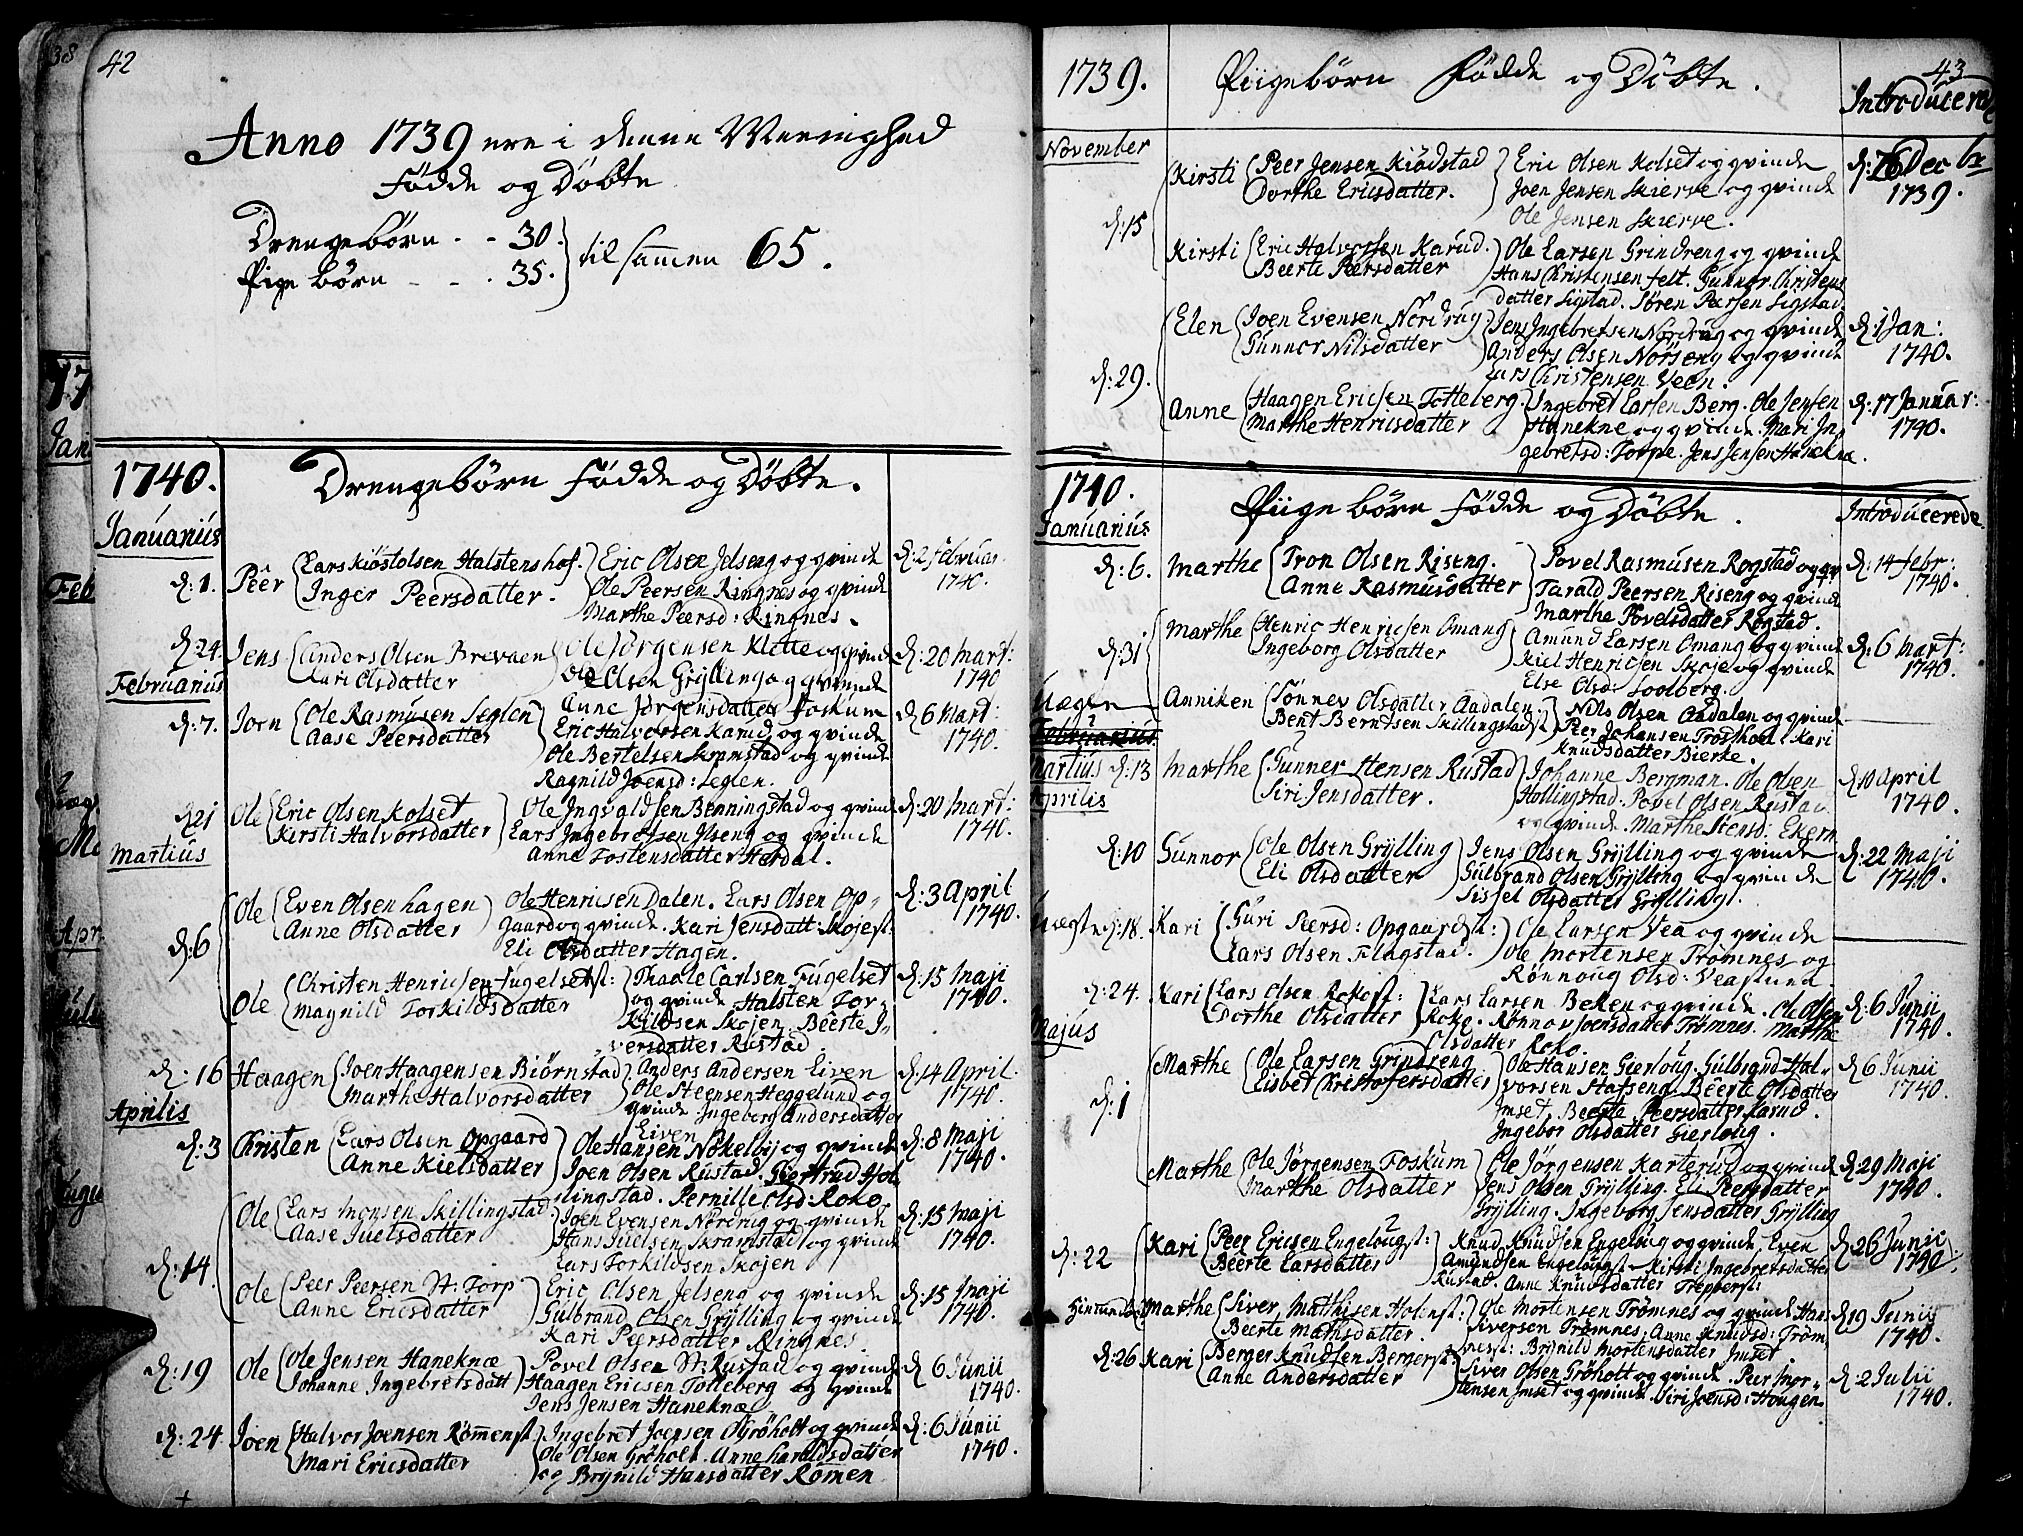 42
Anno 1739 ere i denne Meenighed
Fødde og Døbte
Drengebørn . - 30.
Pige børn - - . 35.
til sammen 65.
1740. Drengebørn Fødde og Døbte.
Januarius
d: 1. Peêr Lars Kiøstolsen Halstenshof. Eric Olsen Jelseng og qvinde d: 2 Februar.
Inger Peersdatter. Ole Peersen Ringnes og qvinde 1740.
Marthe Peersd: Ringnes.
d: 24. Jens Anders Olsen Brevaen Ole Jørgensen Klette og qvinde d: 20 Mart:
Kari Olsdatter Ole Olsen Grylling og qvinde 1740
Februarius
Anne Jørgensdatter Foskum
d: 7. Joen Ole Rasmusen Seglen Eric Halvorsen Karud og qvinde d 6 Mart:
Aase Peersdatter Ole Bertelsen Skramstad og qvinde 1740.
Ragnild Joensd: Seglen.
d: 21 Ole Eric Olsen Kolset Ole Ingvaldsen Benningstad og qvinde d: 20 Mart:
Kirsti Halvorsdatter Lars Ingebretsen Ilseng og qvinde 1740.
Martius
Anne Tostensdatter Herdal.
d: 6 Ole Even Olsen Hagen Ole Henricsen Dalen. Lars Olsen Op- d: 3 April
Anne Olsdatter gaard og qvinde. Kari Jensdatt: Skojest: 1740.
Eli Olsdatter Hagen.
Ole Christen Henricsen Fugelsetst: Thaale Carlsen Fugelset d: 15 Maji
Magnild Torkildsdatter og qvinde Halsten Tor- 1740.
kildsen Skojen. Beêrte I-
versdatter Rustad.
d: 16 Haagen Joen Haagensen Biørnstad Anders Andersen Liven d: 14 April.
Marthe Halvorsdatter Ole Steensen Heggelund og 1740.
qvinde. Ingeborg Andersdatter
Liven
Aprilis
d: 3 Christen Lars Olsen Opgaard Ole Hansen Nökelbij og qvinde d: 8 Maji
Anne Kielsdatter Joen Olsen Rustad. Giertrud Hol- 1740.
lingstad. Pernille Olsd: Roko.
d: 14. Ole Lars Monsen Skillingstad. Joen Evensen Nordrug og qvinde d: 15 Maji
Aase Juelsdatter Hans Juelsen Skramstad og qvinde 1740.
Lars Torkildsen Skojen
Ole Peer Peersen N: Torp Eric Olsen Jelseng og qvinde d: 15 Maji
Anne Ericsdatter Gulbrand Olsen Grylling og qvinde 1740.
Kari Peersdatter Ringnes.
d: 19 Ole Ole Jensen Haneknæ Povel Olsen N: Rustad og qvinde d 6 Junii
Johanne Ingebretsdatt Haagen Ericsen Totteberg og qvinde 1740.
Jens Jensen Haneknæ
d: 24. Joen Halvor Joensen Römenst Ingebret Joensen Grøholt og qvinde d: 6 Junii
Mari Ericsdatter Ole Olsen Grøholt. Anne Haraldsdatter 1740.
og Brynild Hansdatter Römen
43
1739. Piigebørn Fødde og Døbte. Introducerede
November
d: 15 Kirsti Peer Jensen Kiødstad Eric Olsen Kolset og qvinde d: 26 Decbr
Dorthe Ericsdatter. Joen Jensen Skierve og qvinde 1739.
Ole Jensen Skierve.
Kirsti Eric Halvorsen Karud. Ole Larsen Grindreng og qvinde
Beerte Peersdatter Hans Christensen Felt. Gunnor Christens
datter Sigstad. Søren Persen Sigstad.
d: 29. Elen Joen Evensen Nordrug Jens Ingebretsen Nordrug og qvinde d: 1 Jan:
Gunnor Nilsdatter Anders Olsen Norseng og qvinde 1740.
Lars Christensen Veen.
Anne Haagen Ericsen Totteberg. Ingebret Larsen Berg. Ole Jensen d: 17 Januar:
Marthe Henricsdatter Hanekne og qvinde. Mari In- 1740.
gebretsd: Torpe. Jens Jensen Hanekne.
1740. Piige børn Fødde og Døbte. Introducerede
Januarius
d: 6. Marthe Tron Olsen Riseng. Povel Rasmusen Rogstad og qv d: 14 febr:
Anne Rasmusdatter Tarald Peersen Riseng og qvinde 1740.
Marthe Povelsdatter Rogstad.
d: 31 Marthe Henric Henricsen Omang Amund Larsen Omang og qvinde d: 6 Mart:
Ingeborg Olsdatter Kiel Henricsen Skoje og qvinde 1740.
Else Olsd: Loolberg.
Uægte Anniken Sønnev Olsdatter Aadalen Nils Olsen Aadalen og qvinde
Bent Berntsen Skillingstadst Peer Johansen Trosthoel. Kari
Februarius Knudsdatter Bierke.
Martius d: 13 Marthe Gunner Stensen Rustad Johanne Bergman. Ole Olsen d: 10 April
Siri Jensdatter. Hollingstad. Povel Olsen Rustad 1740.
Aprilis
og qvinde. Marthe Stensd. Ekern
d: 10 Gunnor Ole Olsen Grylling Jens Olsen Grylling og qvinde d: 22 Maji
Eli Olsdatter Gulbrand Olsen Grylling og qvinde 1740.
Sissel Olsdatter Grylling.
Uægte d: 18. Kari Guri Peersd: Opgaardst: Ole Larsen Vea og qvinde
Lars Olsen Flagstad. Ole Mortensen Trømnes og
Rønnoug Olsd: Veastuna.
d: 24. Kari Lars Olsen Rokost: Lars Larsen Beken og qvinde. Ole Olsen d: 6 Junii
Dorthe Olsdatter Roko. Rønnov Joensdatter Trømnes. Marthe 1740.
Majus
Olsdatter Roko.
d: 1 Marthe Ole Larsen Grindreng Ole Hansen Gierloug. Gulbrand Hal- d 6 Junii
Lisbet Christofersdatter vorsen Stafseng. Beêrte Olsdatter 1740.
Imset, Beerte Peersdatter Karud.
Ingebor Olsdatter Gierloug.
Marthe Ole Jørgensen Foskum Ole Jørgensen Karterud og qvinde d 29 Maji
Marthe Olsdatter Jens Olsen Grylling. Eli Peersdatter 1740.
Grylling. Ingeborg Jensdatter Grylling
d: 22 Kari Peer Ericsen Engelougst: Knud Knudsen Engeloug og qvinde, Even d 26 Junii
Beerte Larsdatter Amundsen Engelougst. Kirsti Ingebretsdatter 1740.
Rustad. Anne Knudsdatter Trepperst:
Marthe Siver Mathisen Holenst: Ole Mortensen Trømnes og qvinde Han: d 19 Junii
Beerte Mathsdatter. Siversen Trømnes. Anne Knudsd: Trøm- 1740.
nest: Brynild Mortensdatter Imset
d: 26 Kari Berger Knudsen Bergerst: Siver Olsen Grøholt og qvinde. Peer Mor- d: 2 Julii
Anne Andersdatter tensen Imset og qvinde. Siri Joensd: Hougen. 1740.